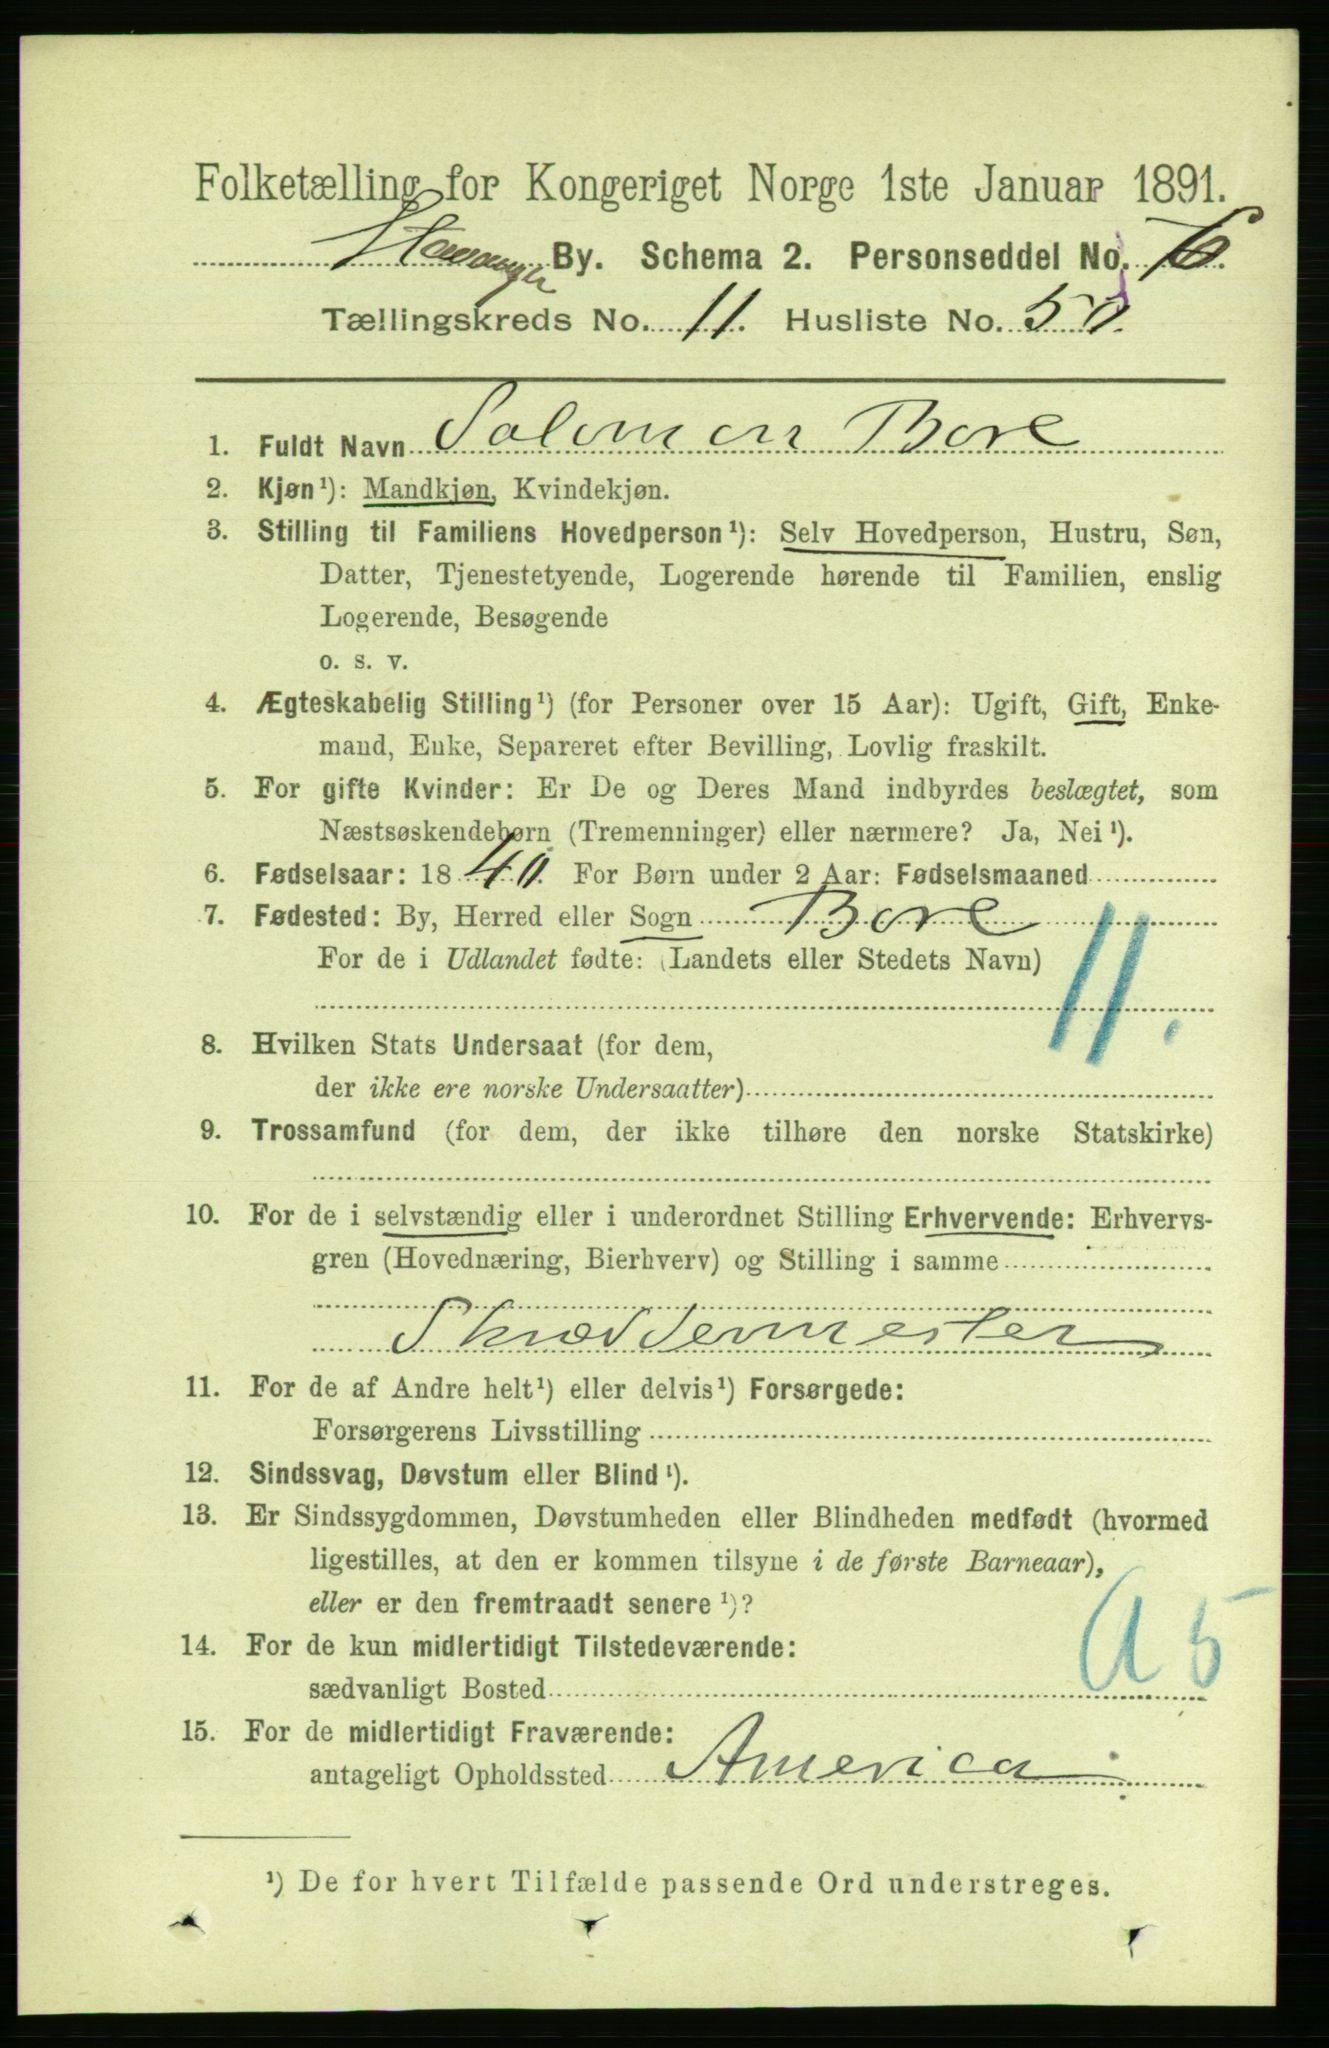 Folketælling for Kongeriget Norge 1ste Januar 1891.
Stavanger By. Schema 2. Personseddel No. 6.
Tællingskreds No. 11. Husliste No. 50.
1. Fuldt Navn Salomon Bore
2. Kjøn¹): Mandkjøn, Kvindekjøn.
3. Stilling til Familiens Hovedperson¹): Selv Hovedperson, Hustru, Søn,
Datter, Tjenestetyende, Logerende hørende til Familien, enslig
Logerende, Besøgende
o. s. v.
4. Ægteskabelig Stilling¹) (for Personer over 15 Aar): Ugift, Gift, Enke-
mand, Enke, Separeret efter Bevilling, Lovlig fraskilt.
5. For gifte Kvinder: Er De og Deres Mand indbyrdes beslægtet, som
Næstsøskendebørn (Tremenninger) eller nærmere? Ja, Nei¹).
6. Fødselsaar: 1840. For Børn under 2 Aar: Fødselsmaaned
7. Fødested: By, Herred eller Sogn Bore
For de i Udlandet fødte: (Landets eller Stedets Navn)
11.
8. Hvilken Stats Undersaat (for dem,
der ikke ere norske Undersaatter)
9. Trossamfund (for dem, der ikke tilhøre den norske Statskirke)
10. For de i selvstændig eller i underordnet Stilling Erhvervende: Erhvervs-
gren (Hovednæring, Bierhverv) og Stilling i samme
Skræddermester
11. For de af Andre helt¹) eller delvis¹) Forsørgede:
Forsørgerens Livsstilling
12. Sindssvag, Døvstum eller Blind¹).
13. Er Sindssygdommen, Døvstumheden eller Blindheden medfødt (hvormed
ligestilles, at den er kommen tilsyne i de første Barneaar),
eller er den fremtraadt senere¹)?
a 5
14. For de kun midlertidigt Tilstedeværende:
sædvanligt Bosted
15. For de midlertidigt Fraværende:
antageligt Opholdssted America
¹) De for hvert Tilfælde passende Ord understreges.